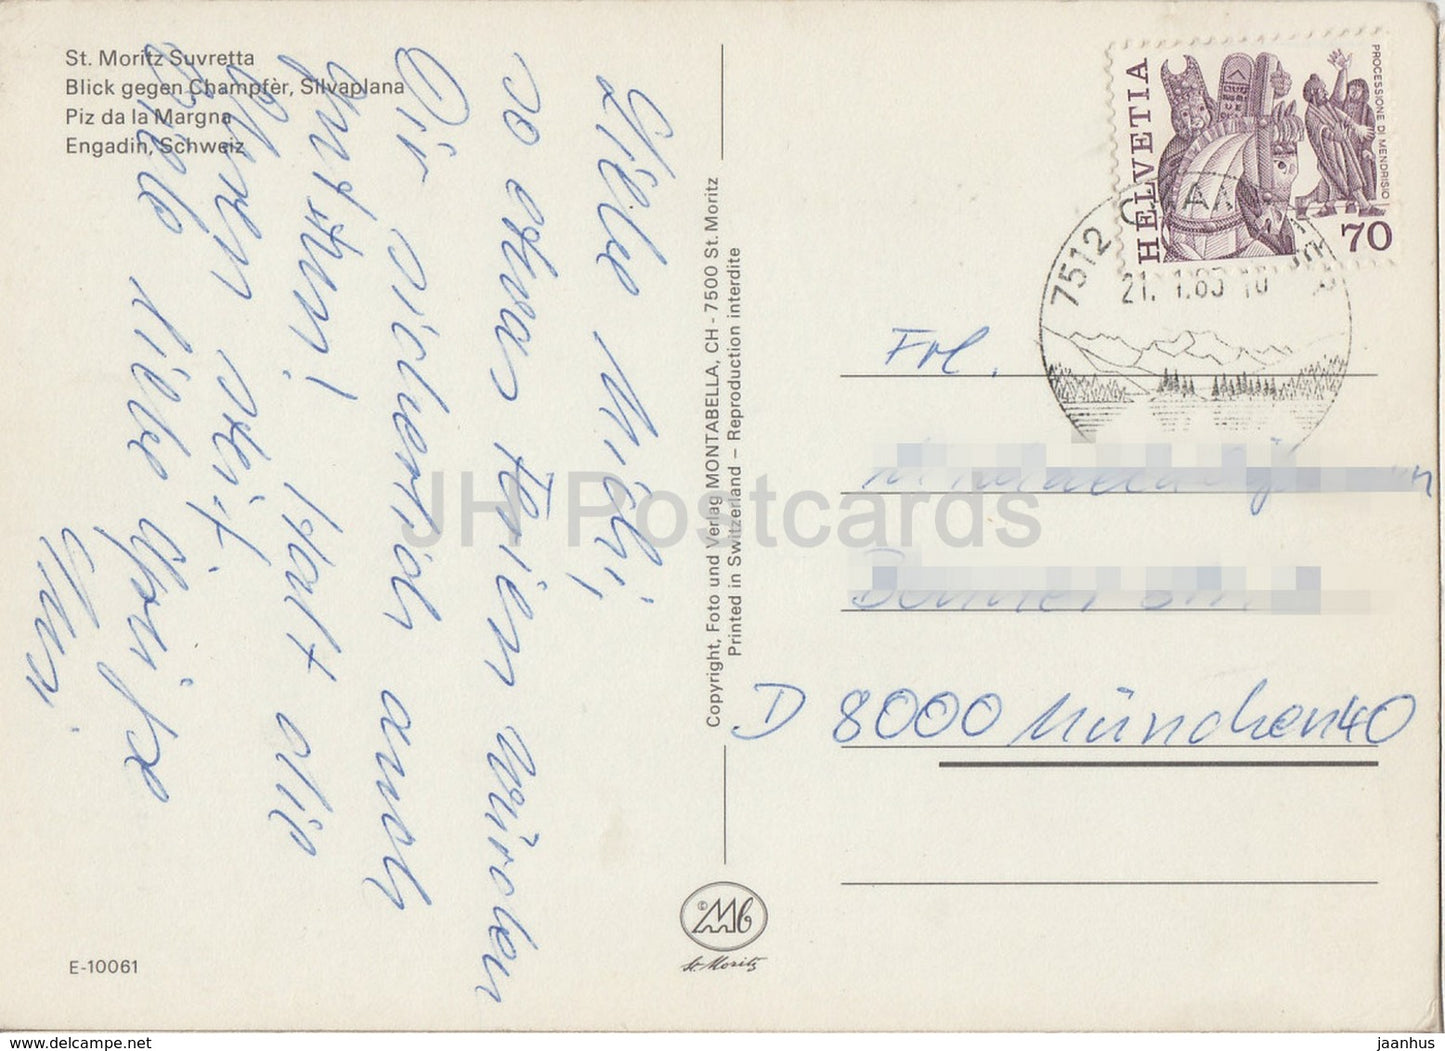 St. Moritz Suvretta
Blick gegen Champfèr, Silvaplana
Piz da la Margna
Engadin, Schweiz
Liebe Michi,
so etwas Feines würden
Dir sicherlich auch
gut tun! Halt die
Ohren steif.
Viele liebe Grüße
E-10061
Copyright, Foto und Verlag MONTABELLA, CH - 7500 St. Moritz
Printed in Switzerland – Reproduction interdite
Mb
St. Moritz
HELVETIA
PROCESSIONE DI MENDRISIO
70
7512
21. 1.83 10
Frl.
D 8000 München 40
JH Postcards
www.delcampe.net
jaanhus